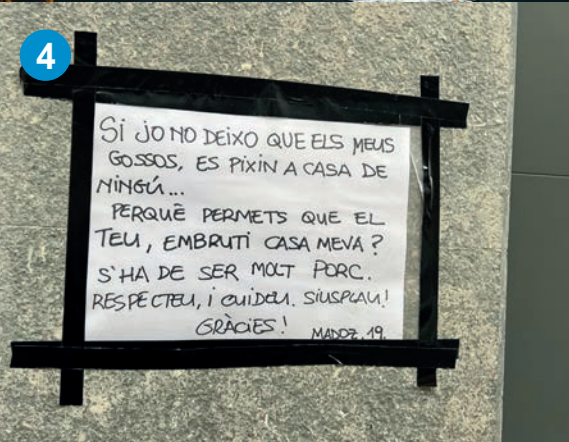 4
SI JO NO DEIXO QUE ELS MEUS
GOSSOS, ES PIXIN A CASA DE
NINGÚ...
PERQUÈ PERMETS QUE EL
TEU, EMBRUTI CASA MEVA?
S'HA DE SER MOLT PORC.
RESPÉCTEU, I CUIDEU. SIUSPLAU!
GRÀCIES!
MADOZ, 19.